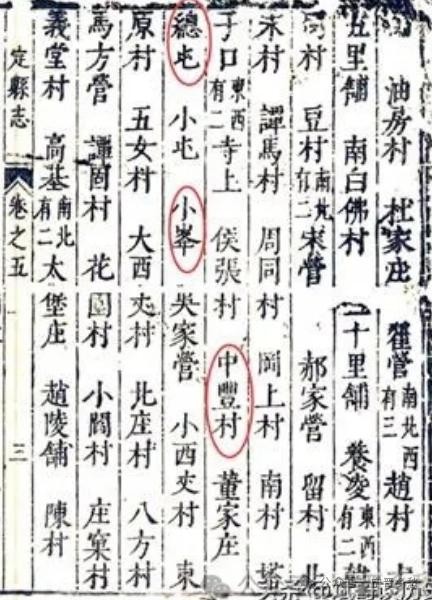 油房村 杜家庄 翟營 南北西有三 趙村
五里舖 南白佛村 十里舖 東西有二 韓
村 豆村 南北有二 宋營 郝家營 留村 北
村 譚馬村 周同村 岡上村 南村 塔
子口 東西有二 寺上 侯張村 中豐村 董家庄
總屯 小屯 小峯 吳家營 小西丈村 東
原村 五女村 大西丈村 北庄村 八方村
馬方營 譚固村 花園村 小閻村 庄窠村
義堂村 高基 南北有二 太堡庄 趙陵舖 陳村
定縣志 卷之五 三